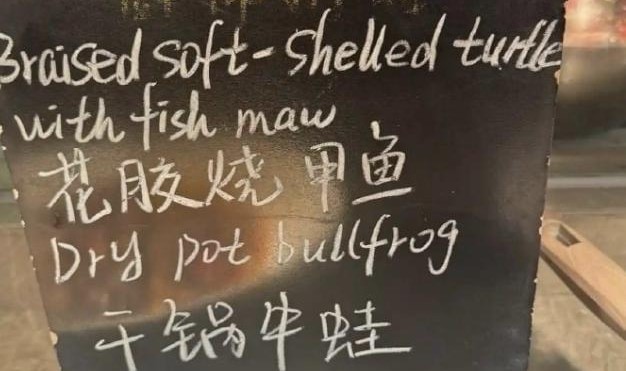 Braised soft-shelled turtle
with fish maw
花胶烧甲鱼
Dry pot bullfrog
干锅牛蛙